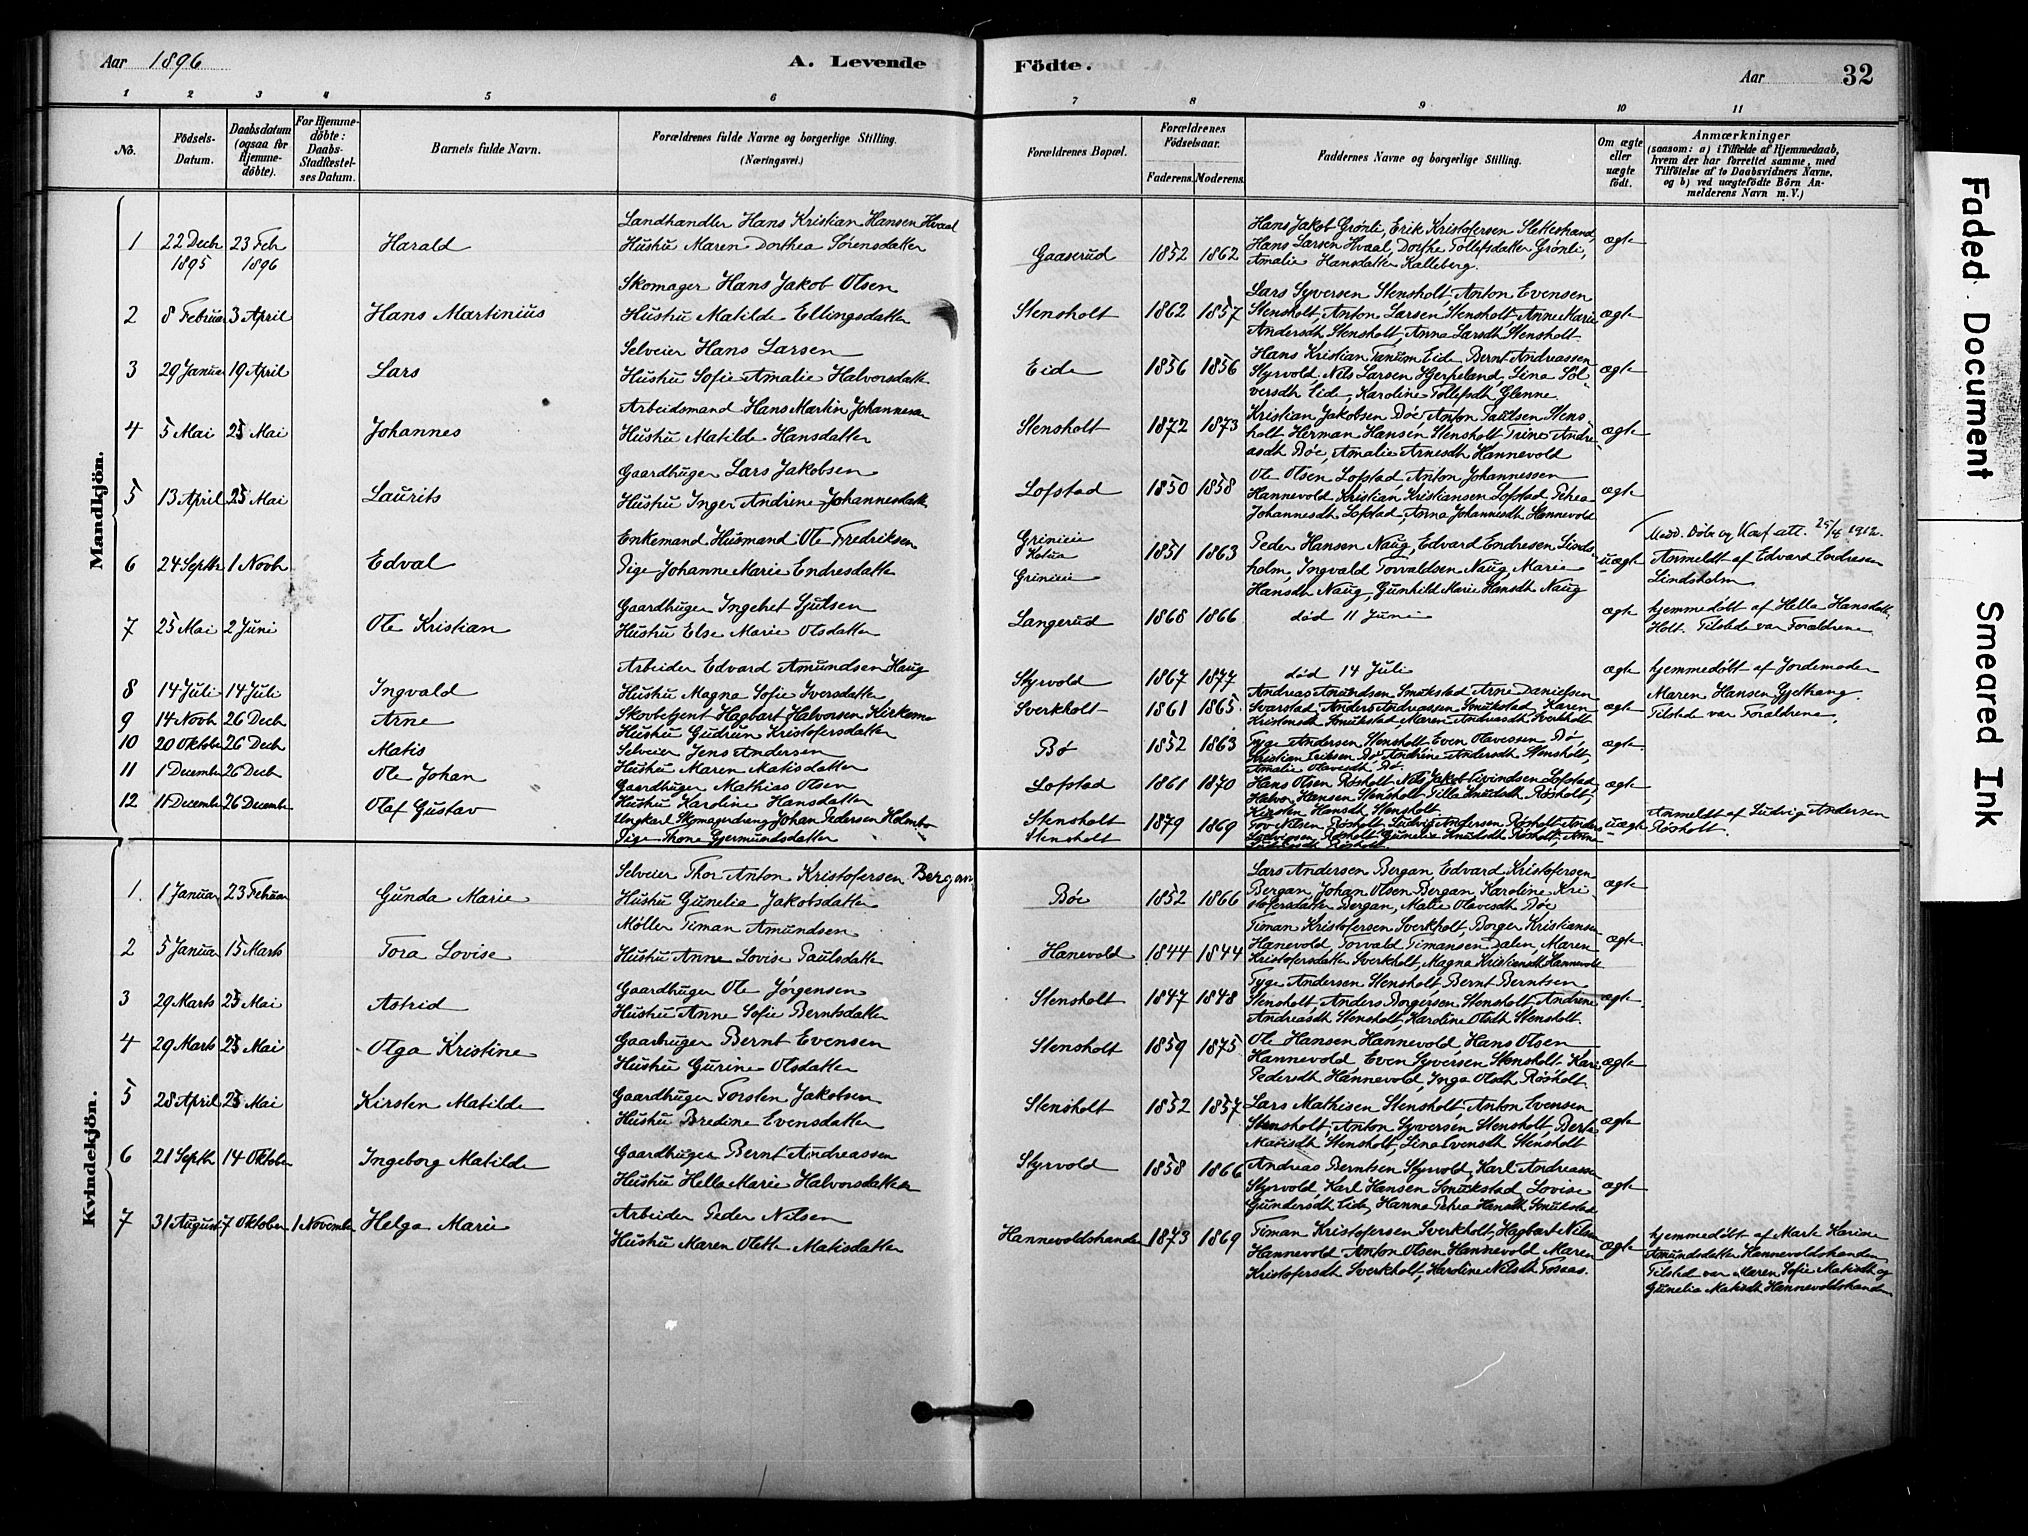 Aar 1896
A. Levende
Födte.
Aar
32
1 2 3 4 5 6 7 8 9 10 11
No.
Födsels-Datum.
Daabsdatum (ogsaa for Hjemme-döbte).
For Hjemme-döbte: Daabs-Stadfæstel-ses Datum.
Barnets fulde Navn.
Forældrenes fulde Navne og borgerlige Stilling. (Næringsvei.)
Forældrenes Bopæl.
Forældrenes Födselsaar.
Faderens. Moderens.
Faddernes Navne og borgerlige Stilling.
Om ægte eller uægte födt.
Anmærkninger (saasom: a) i Tilfælde af Hjemmedaab, hvem der har forrettet samme, med Tilföielse af to Daabsvidners Navne, og b) ved uægtefödte Börn Anmelderens Navn m. V.)
Mandkjön.
1 22 Decb 1895 23 Feb 1896 Harald
Landhandler Hans Kristian Hansen Hvaal
Hustru Maren Dorthea Sörensdatter
Gaaserud 1852 1862
Hans Jakob Grönli, Erik Kristofersen Slettestrand,
Hans Larsen Hvaal, Dorthe Tollefsdatter Grönli,
Amalie Hansdatter Kalleberg.
ægte
2 8 Februa 3 April Hans Martinius
Skomager Hans Jakob Olsen
Hustru Matilde Ellingsdatter
Stensholt 1862 1857
Lars Syversen Stensholt, Anton Evensen
Stensholt, Anton Larsen Stensholt, Anne Marie
Andersdt Stensholt, Anna Larsdt Stensholt
ægte
3 29 Janua 19 April Lars
Selveier Hans Larsen
Hustru Sofie Amalie Halvorsdatt
Eide 1856 1856
Hans Kristian Tanum Eide Bernt Andreassen
Styrvold. Nils Larsen Hjerpeland, Lina Söl-
versdt Eide, Karoline Tollefsdt Glenne
ægte
4 5 Mai 25 Mai Johannes
Arbeidsmand Hans Martin Johannesen
Hustru Matilde Hansdatter
Stensholt 1872 1873
Kristian Jakobsen Böe, Anton Paulsen Stens
holt Herman Hansen Stensholt Trine Andre
asdt Böe, Amalie Arnesdt Hannevold
ægte
5 13 April 25 Mai Laurits
Gaardbruger Lars Jakobsen
Hustru Inger Andrine Johannesdatt
Lofstad 1850 1858
Ole Olsen Lofstad, Anton Johannessen
Hannevold Kristian Kristiansen Lofstad Petrea
Johannesdt Lofstad, Anna Johannesdt Hannevold
ægte
6 24 Septb 1 Novb Edval
Enkemand Husmand Ole Fredriksen
Pige Johanne Marie Endresdatter
1851 1863
Peder Hansen Naug, Edvard Endresen Linds
holm, Ingvald Torvaldsen Naug, Marie
Hansdt Naug, Gunhild Marie Hansdt Naug
uægte
25/4 1912.
Anmeldt af Edvard Endresen
Lindsholm
7 25 Mai 2 Juni Ole Kristian
Gaardbruger Ingebret Sjulsen
Hustru Else Marie Olsdatter
Langerud 1868 1866
död 11 Juni
ægte
hjemmedöbt af Hella Hansdatt,
Holt. Tilstede var Forældrene.
8 14 Juli 14 Juli Ingvald
Arbeider Edvard Amundsen Haug
Hustru Magna Sofie Iversdatter
Styrvold 1867 1877
död 14 Juli
ægte
hjemmedöbt af Jordemoder
Maren Hansen Gjethang.
Tilsted var Forældrene.
9 14 Novb 26 Decb Arne
Skovbetjent Hagbart Halvorsen Kirkemo
Hustru Gudrun Kristofersdatter
Sverkholt 1861 1865
Andreas Amundsen Smukstad Arne Danielsen
Svarstad Anders Andreassen Smukstad, Karen
Kristensdt Smukstad Maren Andreasdt Sverkholt
ægte
10 20 Oktobe 26 Decb Matis
Selveier Jens Andersen
Hustru Maren Matisdatter
Bö 1852 1863
Tyge Andersen Stensholt Even Olavessen Bö
Kristian Eriksen Bö, Andrine Andersdt Stensholt,
Amalie Olavesdt Bö.
ægte
11 1 December 26 Decb Ole Johan
Gaardbruger Mathias Olsen
Hustru Karoline Hansdatter
Lofstad 1861 1870
Hans Olsen Rösholt, Nils Jakob Eivindsen Lofstad
Halvor Hansen Stensholt Tilla Knudsdt Rösholt,
Kirsten Hansdt Stensholt
ægte
12 11 Decembe 26 Decembe Olaf Gustav
Ungkarl Skomagerdreng Johan Pedersen Holmbo
Pige Thone Gjermundsdatter
Stensholt
Stensholt
1879 1869
Tov Nilsen Rösholt, Ludvig Andersen Rösholt Anders
Rösholt, Gunelie Knudsdt Rösholt, Anne
Rösholt
uægte
Anmeldt af Ludvig Andersen
Rösholt.
Kvindekjön.
1. 1 Januar 23 Februar Gunda Marie
Selveier Thor Anton Kristofersen Bergan
Hustru Gunelia Jakobsdatter
Böe 1852 1866
Lars Andersen Bergan, Edvard Kristofersen
Bergan, Johan Olsen Bergan, Karoline Kri
stofersdatter Bergan, Malie Olavesdt Böe
ægte
2 5 Januar 15 Marts Tora Lovise
Möller Timan Amundsen
Hustru Anne Lovise Paulsdatter
Hanevold 1844 1844
Timan Kristofersen Sverkholt, Borger Kristiansen
Hanevold, Torvald Timansen Dalen, Maren
Kristofersdatter Sverkholt, Magna Kristiansdt Hannevold
ægte
3 29 Marts 25 Mai Astrid
Gaardbruger Ole Jörgensen
Hustru Anne Sofie Berntsdatter
Stensholt 1847 1848
Tyge Andersen Stensholt Bernt Berntsen
Stensholt, Anders Borgersen Stensholt, Andrine
Andreasdt Stensholt, Karoline Olsdt Stensholt.
ægte
4 29 Marts 25 Mai Olga Kristine
Gaarbruger Bernt Evensen
Hustru Gurine Olsdatter
Stensholt 1859 1875
Ole Hansen Hannevold, Hans Olsen
Hannevold, Even Syversen Stensholt, Kari
Pedersdt Hannevold, Inga Olsdt Rösholt.
ægte
5 28 April 25 Mai Kirsten Matilde
Gaardbruger Torsten Jakobsen
Hustru Bredine Evensdatter
Stensholt 1852 1857
Lars Mathisen Stensholt, Anton Evensen
Stensholt, Anton Syversen Stensholt, Berte
Marisdt Stensholt, Lina Evensdt Stensholt
ægte
6 21 Septb 14 Oktober Ingeborg Matilde
Gaardbruger Bernt Andreassen
Hustru Hella Marie Halvorsdatter
Styrvold 1858 1866
Andreas Berntsen Styrvold, Karl Andreassen
Styrvold Karl Hansen Smukstad Lovise
Gundersdt Eide, Hanna Petrea Hansdt Smukstad
ægte
7 31 August 7 Oktober 1 November Helga Marie
Arbeider Peder Nilsen
Hustru Maren Olette Matisdatter
Hannevoldstranden 1873 1869
Timan Kristofersen Sverkholt, Hagbart Nilsen
Hannevold Anton Olsen Hannevold Maren
Kristofersdt Sverkholt, Karoline Nilsdt Fossaas.
ægte
hjemmedöbt af Marte Karine
Amundsdatter Hannevoldstranden
Tilsted var Maren Sofie Matisdt og
Gunelia Matisdt Hannevoldstranden
Faded Document
Smeared Ink